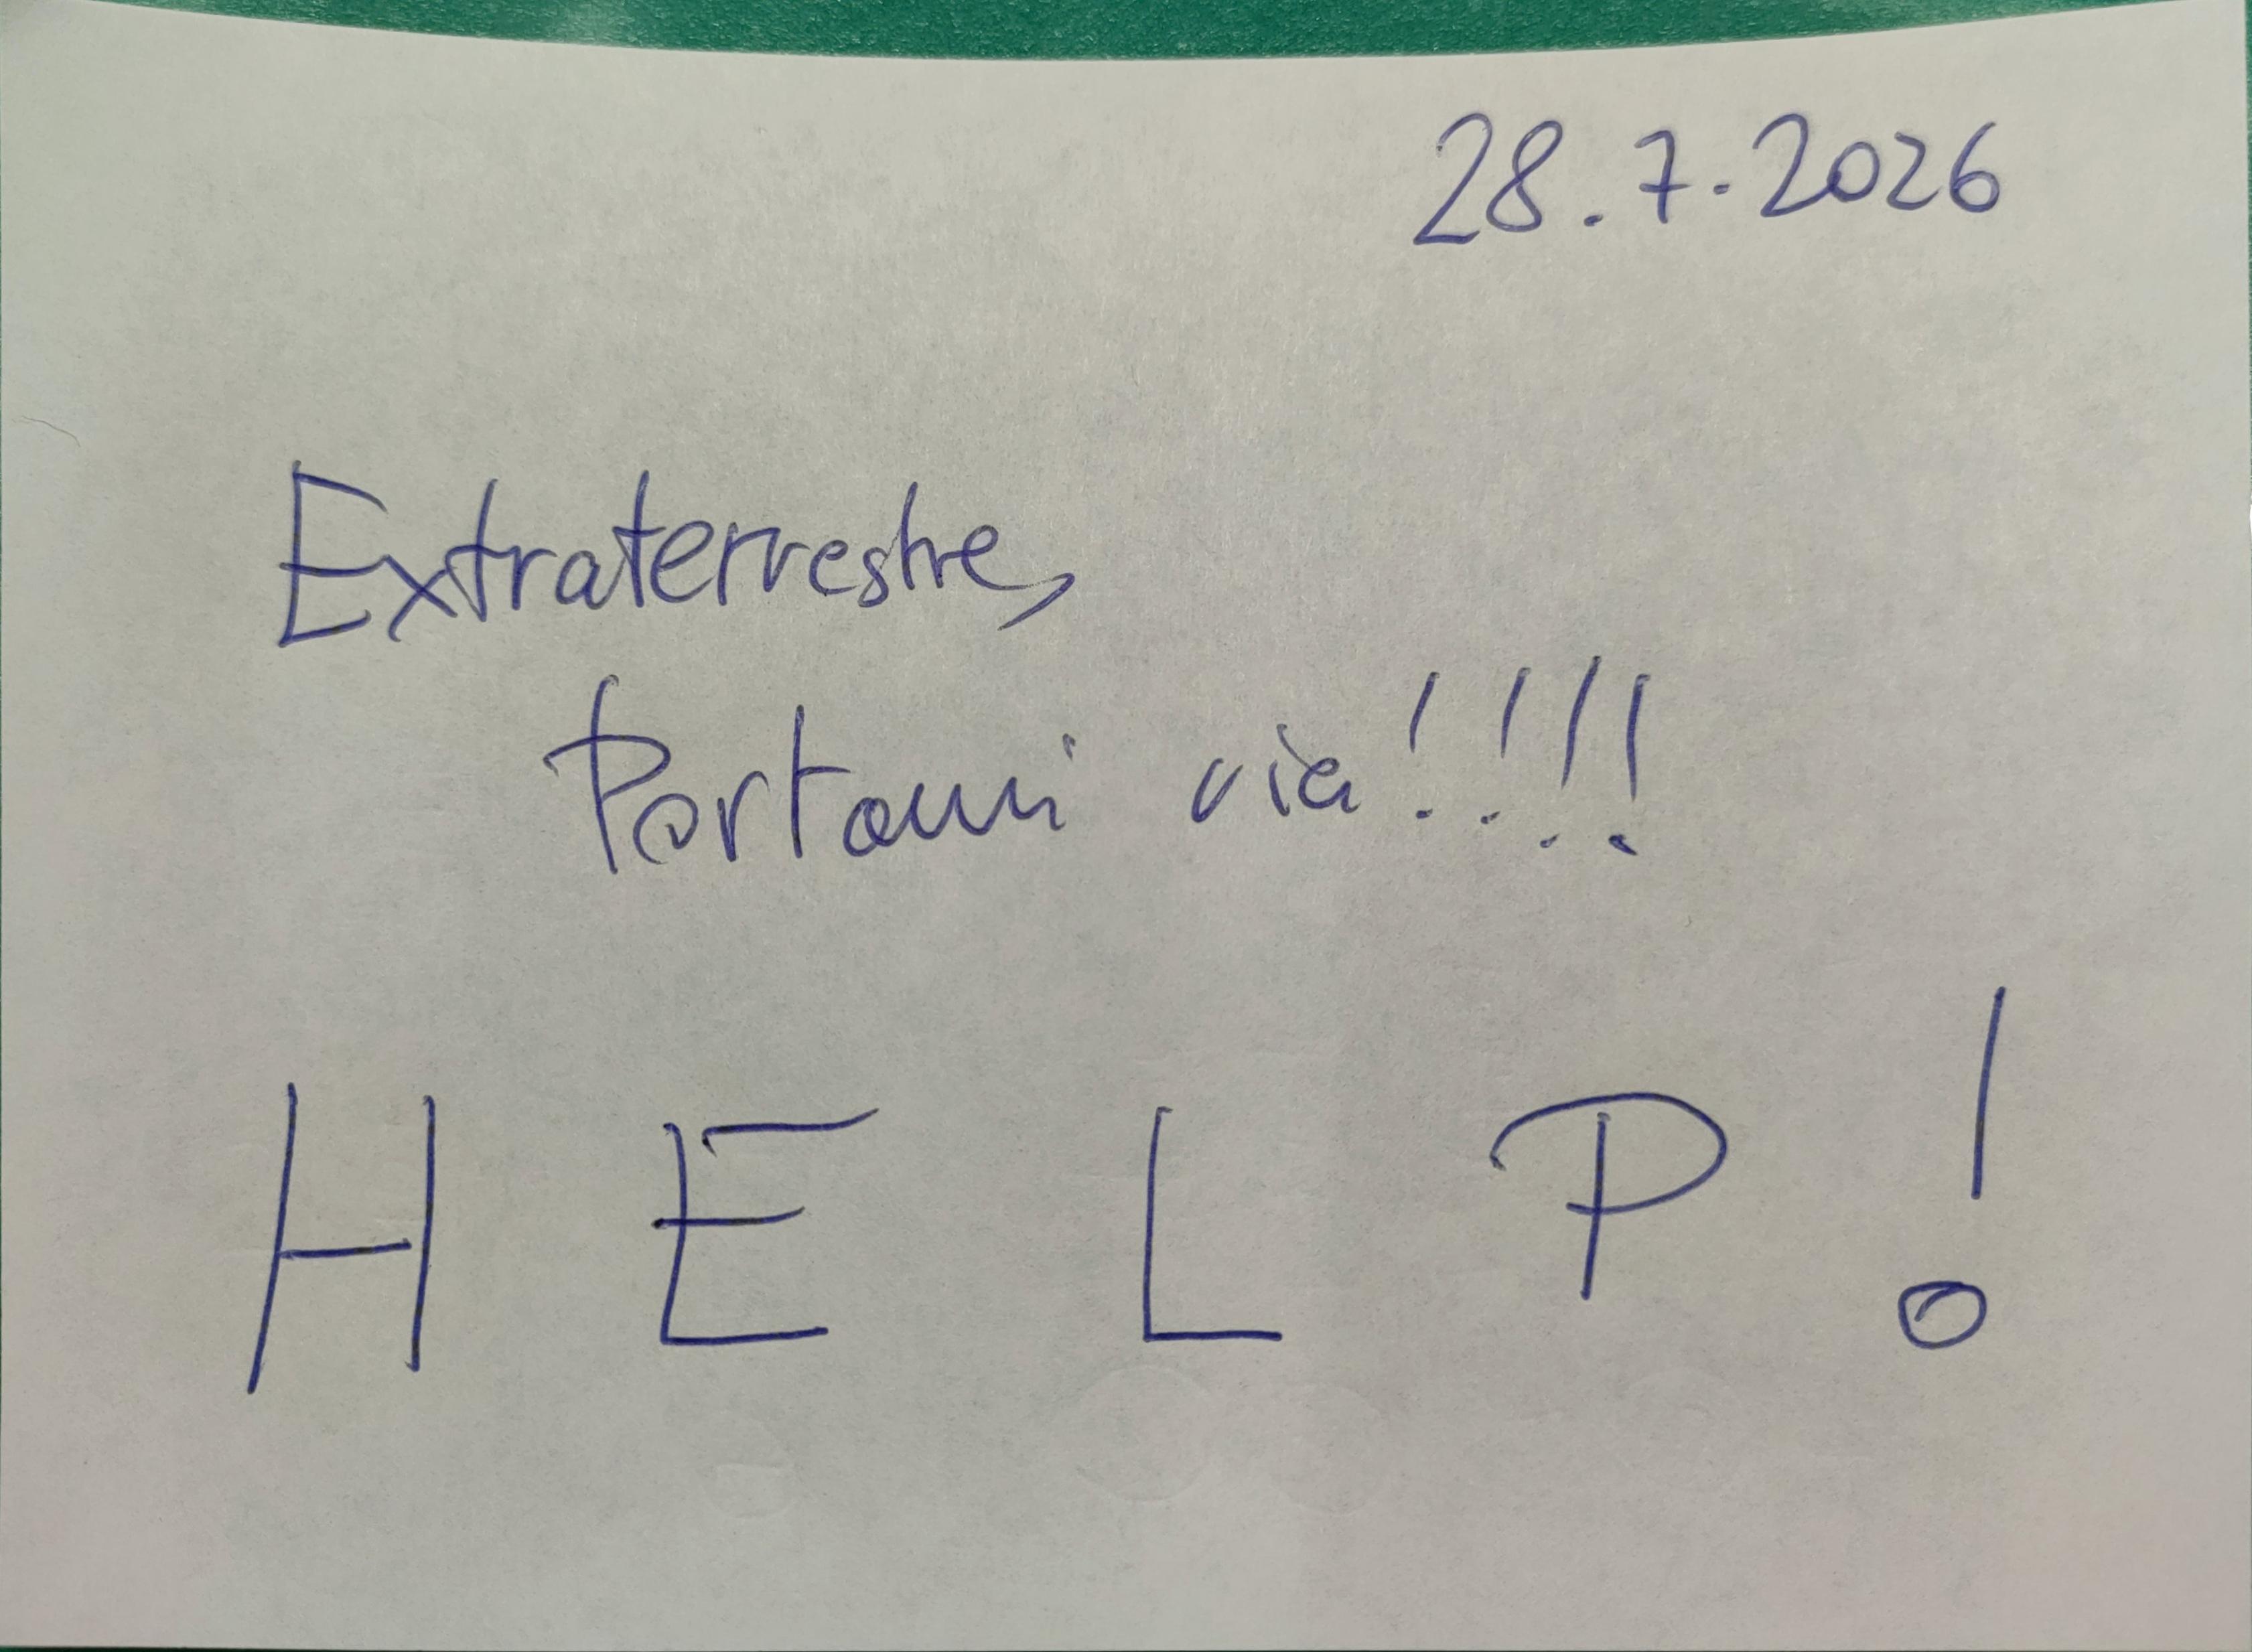 28.7.2026
Extraterrestre,
Portami via!!!!
HELP!